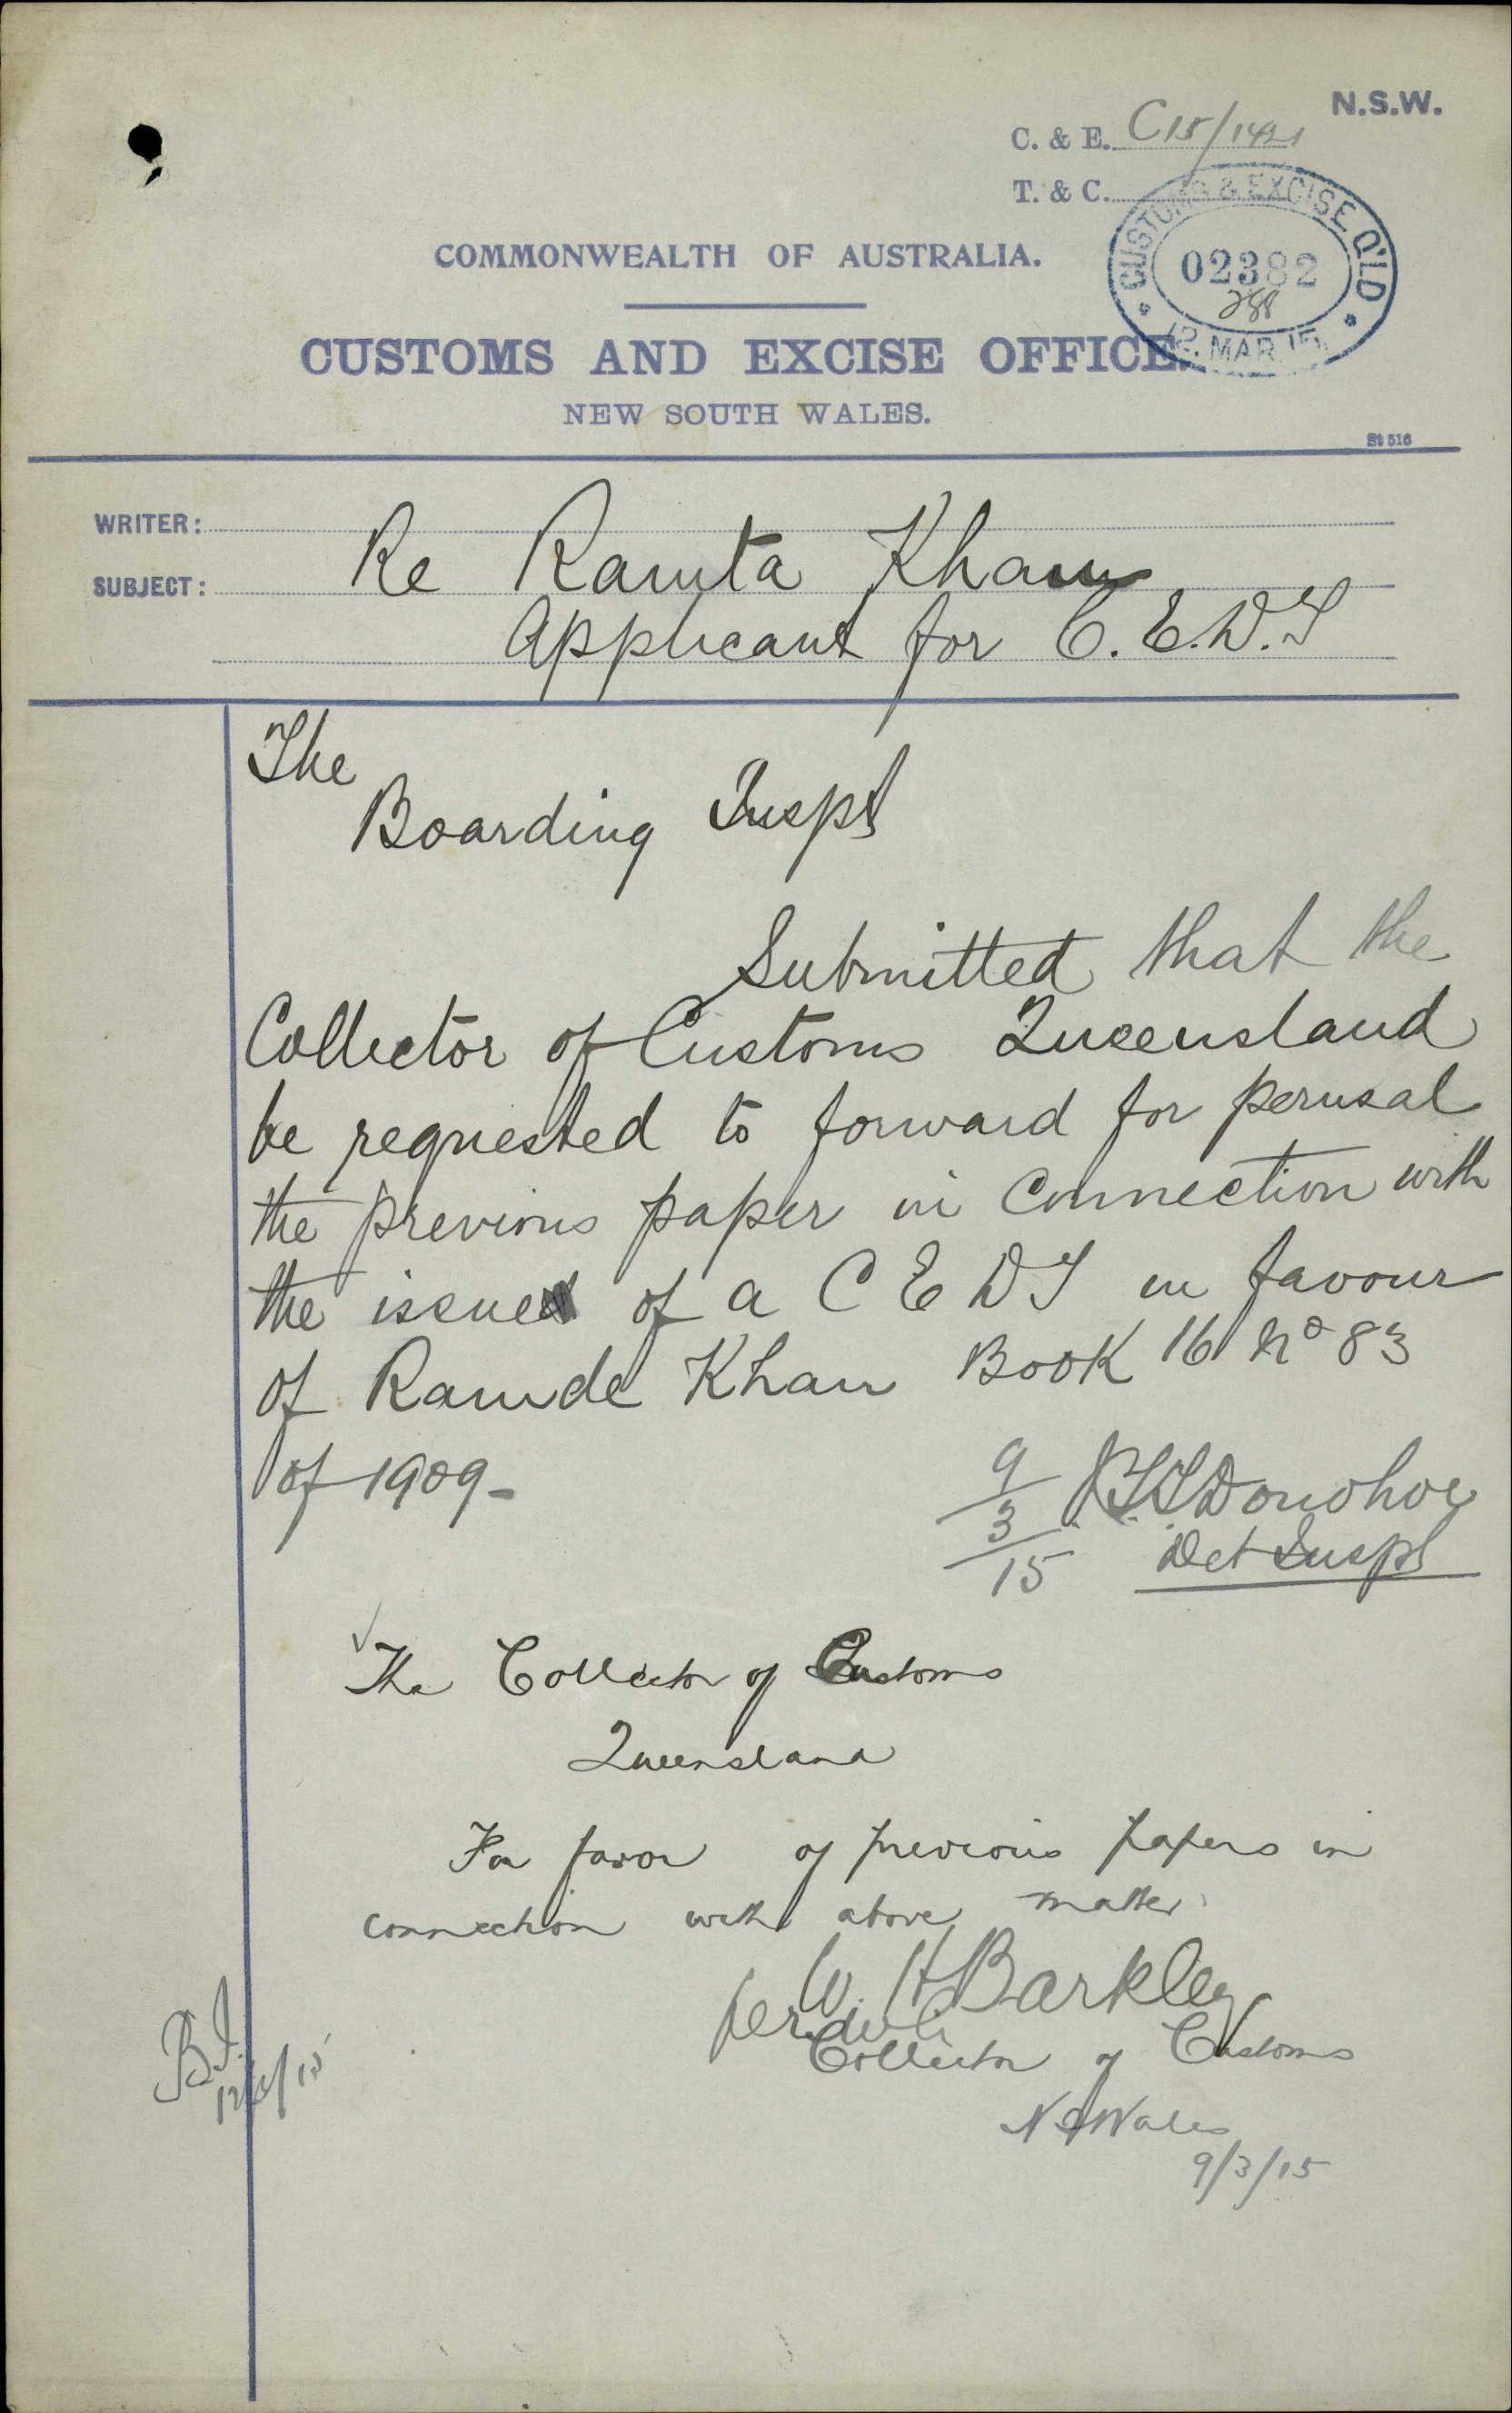 N.S.W.
C. & E. C15/1421
T. & C.
CUSTOMS & EXCISE Q'LD
02382
288
12 MAR 15
COMMONWEALTH OF AUSTRALIA.
CUSTOMS AND EXCISE OFFICE.
NEW SOUTH WALES.
St 516
WRITER:
SUBJECT: Re Ramta Khan
Applicant for C.E.D.T
The
Boarding Inspr
Submitted that the
Collector of Customs Queensland
be requested to forward for perusal
the previous paper in connection with
the issue of a C E D T in favour
of Ramde Khan Book 16 No 83
of 1909-
9/3/15 Donohoe
Det Inspr
The Collector of Customs
Queensland
For favor of previous papers in
connection with above matter
W. H Barkley
per
Collector of Customs
N S Wales
9/3/15
B.I.
12/3/15